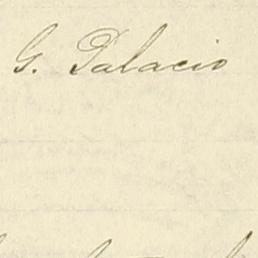 G. Palacio